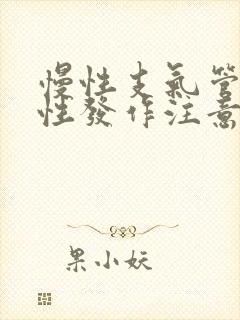 慢性支氣管
性發作注意
果小妖